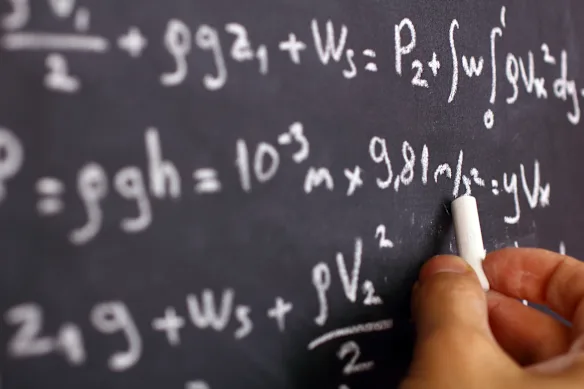 V₁/2 + ρgz₁ + Ws = P₂ + ∫w∫₀¹ ρVx² dy
P = ρgh = 10⁻³ m x 9,81 m/s² = yVx
z₁g + Ws + ρV₂²/2